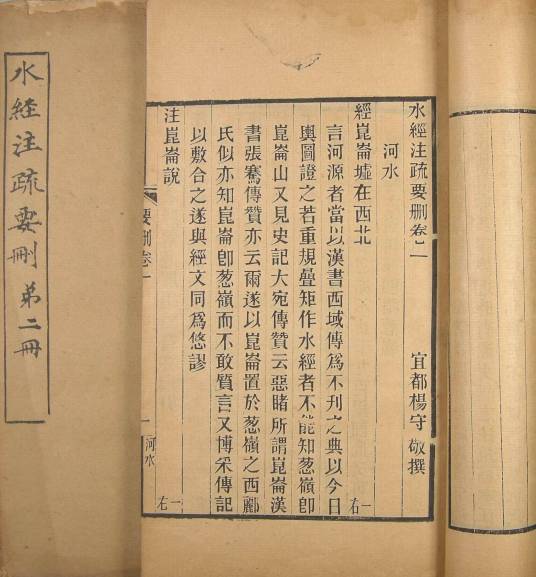 水經注疏要刪卷二
宜都楊守敬撰
河水
經崑崙墟在西北
言河源者當以漢書西域傳爲不刊之典以今日
輿圖證之若重規疊矩作水經者不能知葱嶺卽
崑崙山又見史記大宛傳贊云惡睹所謂崑崙漢
書張騫傳贊亦云爾遂以崑崙置於葱嶺之西酈
氏似亦知崑崙卽葱嶺而不敢質言又博采傳記
以敷合之遂與經文同爲悠謬
注崑崙說
一右
要刪卷一
一
河水
一右
水経注疏要刪 弟二冊